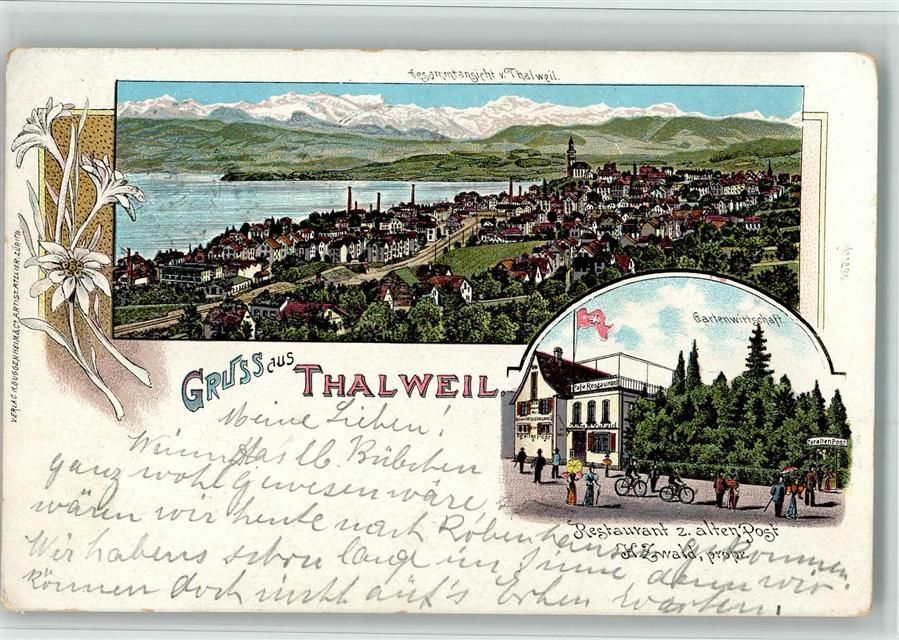 Gesammtansicht v. Thalweil.
VERLAG H. GUGGENHEIM & Co, ARTIST. ATELIER, ZÜRICH.
Gartenwirtschaft.
Café Restaurant
z. alten Post
zur alten Post
GRUSS aus THALWEIL.
Restaurant z. alten Post
H. Zwald, propr.
Meine Lieben!
Wenn das lb Bübchen
ganz wohl gewesen wäre
wären wir heute nach gekommen.
Wir habens schon lange im Sinne, denn wir
können doch nicht auf's warten!